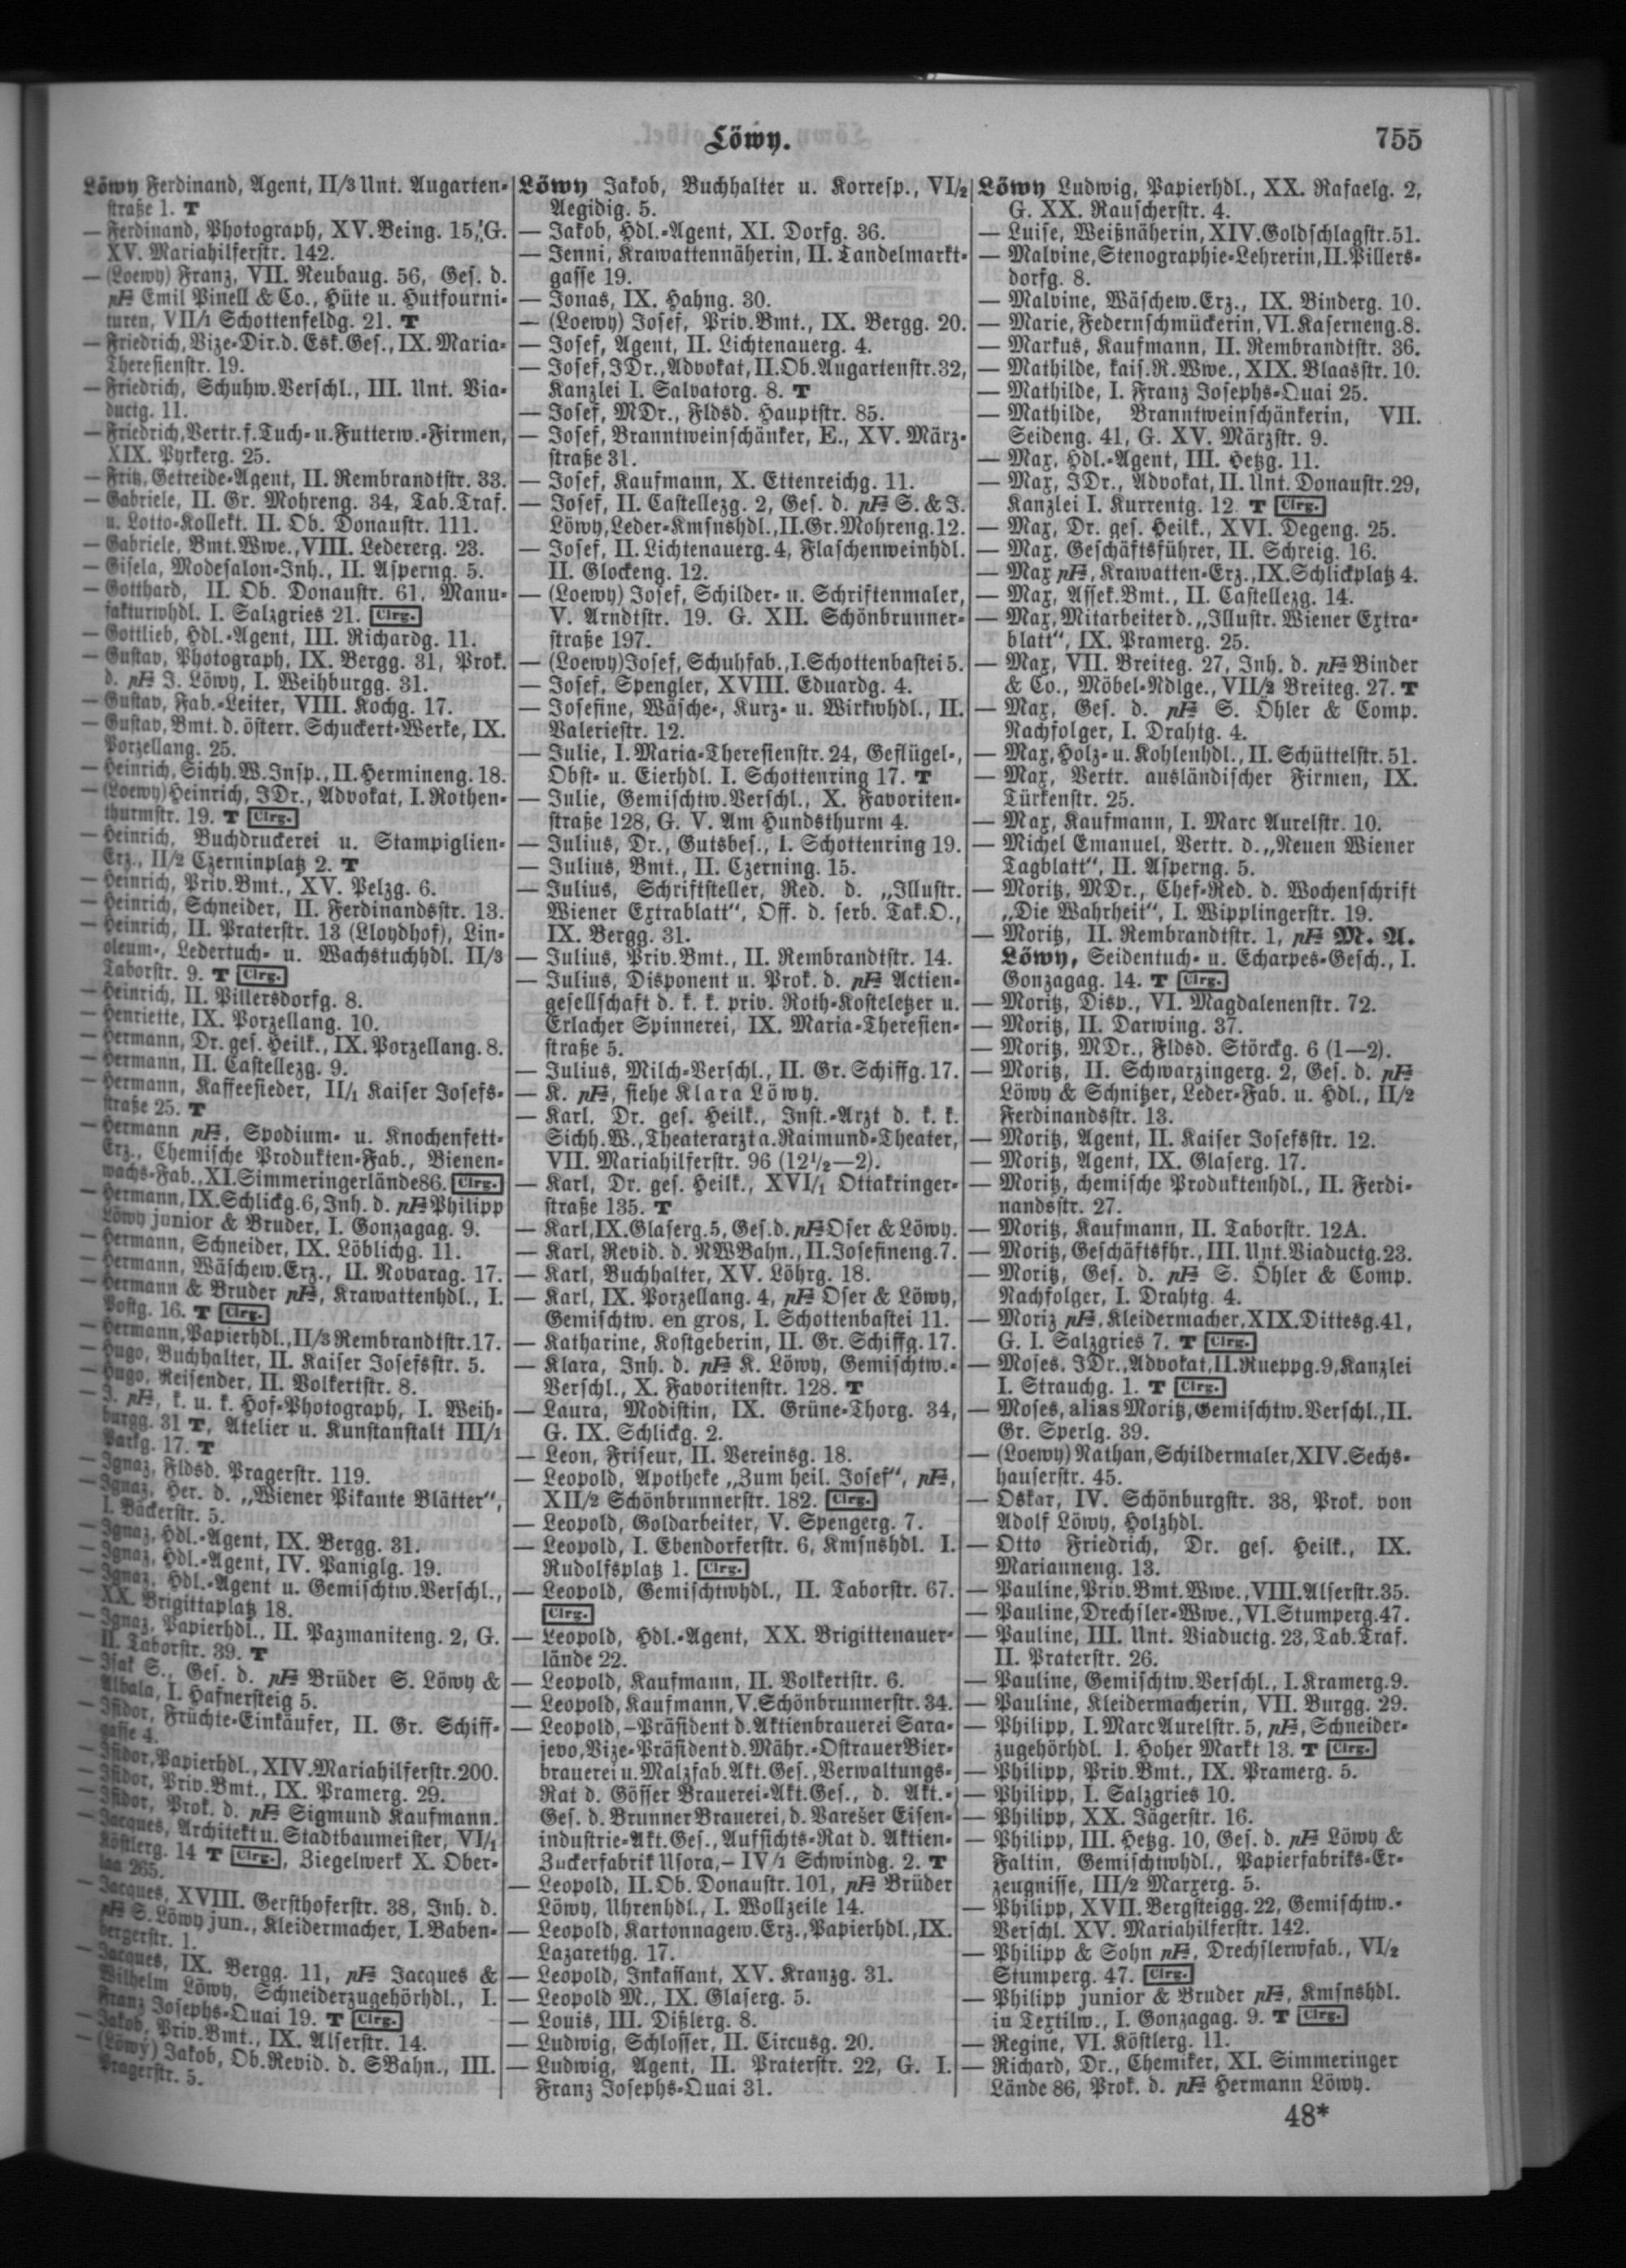 Löwy.
755
Löwy Ferdinand, Agent, II/3 Unt. Augarten-
straße 1. T
— Ferdinand, Photograph, XV. Being. 15, G.
XV. Mariahilferstr. 142.
— (Loewy) Franz, VII. Neubaug. 56, Ges. d.
pF Emil Pinell & Co., Hüte u. Hutfourni-
turen, VII/1 Schottenfeldg. 21. T
— Friedrich, Vize-Dir. d. Esk. Ges., IX. Maria-
Theresienstr. 19.
— Friedrich, Schuhw. Verschl., III. Unt. Via-
ductg. 11.
— Friedrich, Vertr. f. Tuch- u. Futterw.-Firmen,
XIX. Pyrkerg. 25.
— Fritz, Getreide-Agent, II. Rembrandtstr. 33.
— Gabriele, II. Gr. Mohreng. 34, Tab. Traf.
u. Lotto-Kollekt. II. Ob. Donaustr. 111.
— Gabriele, Bmt. Wwe., VIII. Ledererg. 23.
— Gisela, Modesalon-Inh., II. Asperng. 5.
— Gotthard, II. Ob. Donaustr. 61, Manu-
fakturwhdl. I. Salzgries 21. Clrg.
— Gottlieb, Hdl.-Agent, III. Richardg. 11.
— Gustav, Photograph, IX. Bergg. 31, Prok.
d. pF J. Löwy, I. Weihburgg. 31.
— Gustav, Fab.-Leiter, VIII. Kochg. 17.
— Gustav, Bmt. d. österr. Schuckert-Werke, IX.
Porzellang. 25.
— Heinrich, Sichh. W. Insp., II. Hermineng. 18.
— (Loewy) Heinrich, JDr., Advokat, I. Rothen-
thurmstr. 19. T Clrg.
— Heinrich, Buchdruckerei u. Stampiglien-
Erz., II/2 Czerninplatz 2. T
— Heinrich, Priv. Bmt., XV. Pelzg. 6.
— Heinrich, Schneider, II. Ferdinandsstr. 13.
— Heinrich, II. Praterstr. 13 (Lloydhof), Lin-
oleum-, Ledertuch- u. Wachstuchhdl. II/3
Taborstr. 9. T Clrg.
— Heinrich, II. Pillersdorfg. 8.
— Henriette, IX. Porzellang. 10.
— Hermann, Dr. ges. Heilk., IX. Porzellang. 8.
— Hermann, II. Castellezg. 9.
— Hermann, Kaffeesieder, II/1 Kaiser Josefs-
straße 25. T
— Hermann pF, Spodium- u. Knochenfett-
Erz., Chemische Produkten-Fab., Bienen-
wachs-Fab., XI. Simmeringerlände 86. Clrg.
— Hermann, IX. Schlickg. 6, Inh. d. pF Philipp
Löwy junior & Bruder, I. Gonzagag. 9.
— Hermann, Schneider, IX. Löblichg. 11.
— Hermann, Wäschew. Erz., II. Novarag. 17.
— Hermann & Bruder pF, Krawattenhdl., I.
Postg. 16. T Clrg.
— Hermann, Papierhdl., II/3 Rembrandtstr. 17.
— Hugo, Buchhalter, II. Kaiser Josefsstr. 5.
— Hugo, Reisender, II. Volkertstr. 8.
— J. pF, k. u. k. Hof-Photograph, I. Weih-
burgg. 31 T, Atelier u. Kunstanstalt III/1
Parkg. 17. T
— Ignaz, Fldsd. Pragerstr. 119.
— Ignaz, Her. d. „Wiener Pikante Blätter“,
I. Bäckerstr. 5.
— Ignaz, Hdl.-Agent, IX. Bergg. 31.
— Ignaz, Hdl.-Agent, IV. Paniglg. 19.
— Ignaz, Hdl.-Agent u. Gemischtw. Verschl.,
XX. Brigittaplatz 18.
— Ignaz, Papierhdl., II. Pazmaniteng. 2, G.
II. Taborstr. 39. T
— Isak S., Ges. d. pF Brüder S. Löwy &
Albala, I. Hafnersteig 5.
— Isidor, Früchte-Einkäufer, II. Gr. Schiff-
gasse 4.
— Isidor, Papierhdl., XIV. Mariahilferstr. 200.
— Isidor, Priv. Bmt., IX. Pramerg. 29.
— Isidor, Prok. d. pF Sigmund Kaufmann.
— Jacques, Architekt u. Stadtbaumeister, VI/1
Köstlerg. 14 T Clrg., Ziegelwerk X. Ober-
laa 265.
— Jacques, XVIII. Gersthoferstr. 38, Inh. d.
pF S. Löwy jun., Kleidermacher, I. Baben-
bergerstr. 1.
— Jacques, IX. Bergg. 11, pF Jacques &
Wilhelm Löwy, Schneiderzugehörhdl., I.
Franz Josephs-Quai 19. T Clrg.
— Jakob, Priv. Bmt., IX. Alserstr. 14.
— (Löwy) Jakob, Ob. Revid. d. SBahn., III.
Pragerstr. 5.
Löwy Jakob, Buchhalter u. Korresp., VI/2
Aegidig. 5.
— Jakob, Hdl.-Agent, XI. Dorfg. 36.
— Jenni, Krawattennäherin, II. Tandelmarkt-
gasse 19.
— Jonas, IX. Hahng. 30.
— (Loewy) Josef, Priv. Bmt., IX. Bergg. 20.
— Josef, Agent, II. Lichtenauerg. 4.
— Josef, JDr., Advokat, II. Ob. Augartenstr. 32,
Kanzlei I. Salvatorg. 8. T
— Josef, MDr., Fldsd. Hauptstr. 85.
— Josef, Branntweinschänker, E., XV. März-
straße 31.
— Josef, Kaufmann, X. Ettenreichg. 11.
— Josef, II. Castellezg. 2, Ges. d. pF S. & J.
Löwy, Leder-Kmsnshdl., II. Gr. Mohreng. 12.
— Josef, II. Lichtenauerg. 4, Flaschenweinhdl.
II. Glockeng. 12.
— (Loewy) Josef, Schilder- u. Schriftenmaler,
V. Arndtstr. 19. G. XII. Schönbrunner-
straße 197.
— (Loewy) Josef, Schuhfab., I. Schottenbastei 5.
— Josef, Spengler, XVIII. Eduardg. 4.
— Josefine, Wäsche-, Kurz- u. Wirkwhdl., II.
Valeriestr. 12.
— Julie, I. Maria-Theresienstr. 24, Geflügel-,
Obst- u. Eierhdl. I. Schottenring 17. T
— Julie, Gemischtw. Verschl., X. Favoriten-
straße 128, G. V. Am Hundsthurm 4.
— Julius, Dr., Gutsbes., I. Schottenring 19.
— Julius, Bmt., II. Czerning. 15.
— Julius, Schriftsteller, Red. d. „Illustr.
Wiener Extrablatt“, Off. d. serb. Tak. O.,
IX. Bergg. 31.
— Julius, Priv. Bmt., II. Rembrandtstr. 14.
— Julius, Disponent u. Prok. d. pF Actien-
gesellschaft d. k. k. priv. Roth-Kosteletzer u.
Erlacher Spinnerei, IX. Maria-Theresien-
straße 5.
— Julius, Milch-Verschl., II. Gr. Schiffg. 17.
— K. pF, siehe Klara Löwy.
— Karl, Dr. ges. Heilk., Inst.-Arzt d. k. k.
Sichh. W., Theaterarzt a. Raimund-Theater,
VII. Mariahilferstr. 96 (12½—2).
— Karl, Dr. ges. Heilk., XVI/1 Ottakringer-
straße 135. T
— Karl, IX. Glaserg. 5, Ges. d. pF Oser & Löwy.
— Karl, Revid. d. NWBahn., II. Josefineng. 7.
— Karl, Buchhalter, XV. Löhrg. 18.
— Karl, IX. Porzellang. 4, pF Oser & Löwy,
Gemischtw. en gros, I. Schottenbastei 11.
— Katharine, Kostgeberin, II. Gr. Schiffg. 17.
— Klara, Inh. d. pF K. Löwy, Gemischtw.-
Verschl., X. Favoritenstr. 128. T
— Laura, Modistin, IX. Grüne-Thorg. 34,
G. IX. Schlickg. 2.
— Leon, Friseur, II. Vereinsg. 18.
— Leopold, Apotheke „Zum heil. Josef“, pF,
XII/2 Schönbrunnerstr. 182. Clrg.
— Leopold, Goldarbeiter, V. Spengerg. 7.
— Leopold, I. Ebendorferstr. 6, Kmsnshdl. I.
Rudolfsplatz 1. Clrg.
— Leopold, Gemischtwhdl., II. Taborstr. 67.
Clrg.
— Leopold, Hdl.-Agent, XX. Brigittenauer-
lände 22.
— Leopold, Kaufmann, II. Volkertstr. 6.
— Leopold, Kaufmann, V. Schönbrunnerstr. 34.
— Leopold, –Präsident d. Aktienbrauerei Sara-
jevo, Vize-Präsident d. Mähr.-Ostrauer Bier-
brauerei u. Malzfab. Akt. Ges., Verwaltungs-
Rat d. Gösser Brauerei-Akt. Ges., d. Akt.-
Ges. d. Brunner Brauerei, d. Varešer Eisen-
industrie-Akt. Ges., Aufsichts-Rat d. Aktien-
Zuckerfabrik Usora,– IV/1 Schwindg. 2. T
— Leopold, II. Ob. Donaustr. 101, pF Brüder
Löwy, Uhrenhdl., I. Wollzeile 14.
— Leopold, Kartonnagew. Erz., Papierhdl., IX.
Lazarethg. 17.
— Leopold, Inkassant, XV. Kranzg. 31.
— Leopold M., IX. Glaserg. 5.
— Louis, III. Dißlerg. 8.
— Ludwig, Schlosser, II. Circusg. 20.
— Ludwig, Agent, II. Praterstr. 22, G. I.
Franz Josephs-Quai 31.
Löwy Ludwig, Papierhdl., XX. Rafaelg. 2,
G. XX. Rauscherstr. 4.
— Luise, Weißnäherin, XIV. Goldschlagstr. 51.
— Malvine, Stenographie-Lehrerin, II. Pillers-
dorfg. 8.
— Malvine, Wäschew. Erz., IX. Binderg. 10.
— Marie, Federnschmückerin, VI. Kaserneng. 8.
— Markus, Kaufmann, II. Rembrandtstr. 36.
— Mathilde, kais. R. Wwe., XIX. Blaasstr. 10.
— Mathilde, I. Franz Josephs-Quai 25.
— Mathilde, Branntweinschänkerin, VII.
Seideng. 41, G. XV. Märzstr. 9.
— Max, Hdl.-Agent, III. Hetzg. 11.
— Max, JDr., Advokat, II. Unt. Donaustr. 29,
Kanzlei I. Kurrentg. 12 T Clrg.
— Max, Dr. ges. Heilk., XVI. Degeng. 25.
— Max, Geschäftsführer, II. Schreig. 16.
— Max pF, Krawatten-Erz., IX. Schlickplatz 4.
— Max, Assek. Bmt., II. Castellezg. 14.
— Max, Mitarbeiter d. „Illustr. Wiener Extra-
blatt“, IX. Pramerg. 25.
— Max, VII. Breiteg. 27, Inh. d. pF Binder
& Co., Möbel-Ndlge., VII/2 Breiteg. 27. T
— Max, Ges. d. pF S. Öhler & Comp.
Nachfolger, I. Drahtg. 4.
— Max, Holz- u. Kohlenhdl., II. Schüttelstr. 51.
— Max, Vertr. ausländischer Firmen, IX.
Türkenstr. 25.
— Max, Kaufmann, I. Marc Aurelstr. 10.
— Michel Emanuel, Vertr. d. „Neuen Wiener
Tagblatt“, II. Asperng. 5.
— Moritz, MDr., Chef-Red. d. Wochenschrift
„Die Wahrheit“, I. Wipplingerstr. 19.
— Moritz, II. Rembrandtstr. 1, pF M. A.
Löwy, Seidentuch- u. Echarpes-Gesch., I.
Gonzagag. 14. T Clrg.
— Moritz, Disp., VI. Magdalenenstr. 72.
— Moritz, II. Darwing. 37.
— Moritz, MDr., Fldsd. Störckg. 6 (1—2).
— Moritz, II. Schwarzingerg. 2, Ges. d. pF
Löwy & Schnitzer, Leder-Fab. u. Hdl., II/2
Ferdinandsstr. 13.
— Moritz, Agent, II. Kaiser Josefsstr. 12.
— Moritz, Agent, IX. Glaserg. 17.
— Moritz, chemische Produktenhdl., II. Ferdi-
nandsstr. 27.
— Moritz, Kaufmann, II. Taborstr. 12A.
— Moritz, Geschäftsfhr., III. Unt. Viaductg. 23.
— Moritz, Ges. d. pF S. Öhler & Comp.
Nachfolger, I. Drahtg. 4.
— Moriz pF, Kleidermacher, XIX. Dittesg. 41,
G. I. Salzgries 7. T Clrg.
— Moses, JDr., Advokat, II. Rueppg. 9, Kanzlei
I. Strauchg. 1. T Clrg.
— Moses, alias Moritz, Gemischtw. Verschl., II.
Gr. Sperlg. 39.
— (Loewy) Nathan, Schildermaler, XIV. Sechs-
hauserstr. 45.
— Oskar, IV. Schönburgstr. 38, Prok. von
Adolf Löwy, Holzhdl.
— Otto Friedrich, Dr. ges. Heilk., IX.
Marianneng. 13.
— Pauline, Priv. Bmt. Wwe., VIII. Alserstr. 35.
— Pauline, Drechsler-Wwe., VI. Stumperg. 47.
— Pauline, III. Unt. Viaductg. 23, Tab. Traf.
II. Praterstr. 26.
— Pauline, Gemischtw. Verschl., I. Kramerg. 9.
— Pauline, Kleidermacherin, VII. Burgg. 29.
— Philipp, I. Marc Aurelstr. 5, pF, Schneider-
zugehörhdl. I. Hoher Markt 13. T Clrg.
— Philipp, Priv. Bmt., IX. Pramerg. 5.
— Philipp, I. Salzgries 10.
— Philipp, XX. Jägerstr. 16.
— Philipp, III. Hetzg. 10, Ges. d. pF Löwy &
Faltin, Gemischtwhdl., Papierfabriks-Er-
zeugnisse, III/2 Marxerg. 5.
— Philipp, XVII. Bergsteigg. 22, Gemischtw.-
Verschl. XV. Mariahilferstr. 142.
— Philipp & Sohn pF, Drechslerwfab., VI/2
Stumperg. 47. Clrg.
— Philipp junior & Bruder pF, Kmsnshdl.
in Textilw., I. Gonzagag. 9. T Clrg.
— Regine, VI. Köstlerg. 11.
— Richard, Dr., Chemiker, XI. Simmeringer
Lände 86, Prok. d. pF Hermann Löwy.
48*